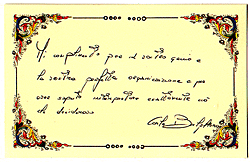 Mi complimento per il vostro genio e
la vostra perfetta organizzazione e per
aver saputo interpretare esattamente
che desideravo